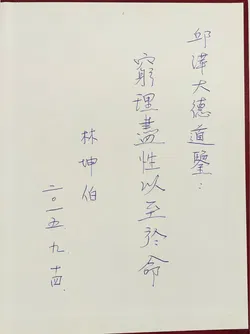 邱漢大德道鑒：
窮理盡性以至於命
林坤伯
二〇一五九十四.